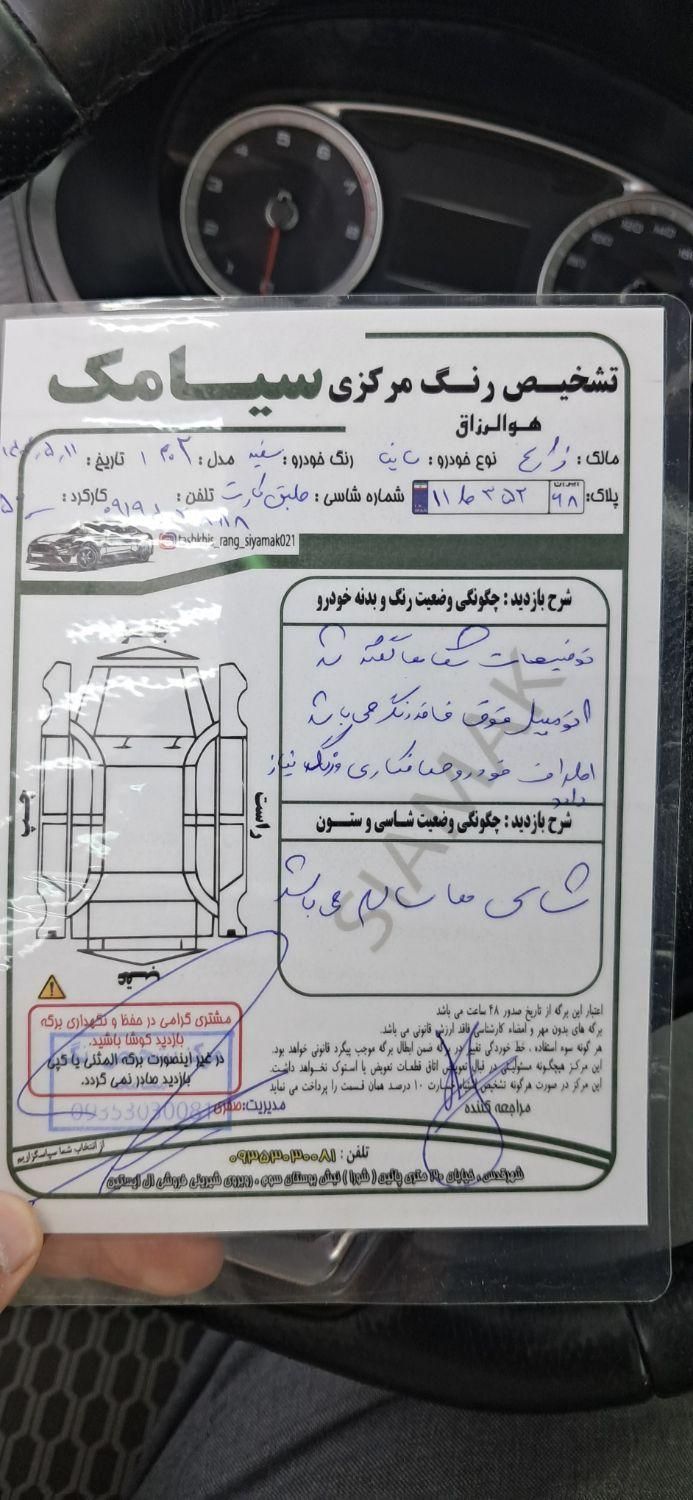 تشخیص رنگ مرکزی سیامک
هوالرزاق
مالک : زارع نوع خودرو : ساینا رنگ خودرو : سفید مدل : تاریخ :
پلاک: ایران ۶۸ ۳۵۲ ط ۱۱ شماره شاسی : طبق کارت تلفن : کارکرد :
tashkhis_rang_siyamak021
شرح بازدید : چگونگی وضعیت رنگ و بدنه خودرو
توضیحات شفاها گفته شد
اتومبیل فوق فاقد رنگ می باشد
اطراف خودرو صافکاری و رنگ نیاز
دارد
شرح بازدید : چگونگی وضعیت شاسی و ستون
شاسی ها سالم می باشد
جلو
چپ
راست
عقب
SIAMAK
اعتبار این برگه از تاریخ صدور ۴۸ ساعت می باشد
برگه های بدون مهر و امضاء کارشناسی فاقد ارزش قانونی می باشد.
هر گونه سوء استفاده ، خط خوردگی تغییر در برگه ضمن ابطال برگه موجب پیگرد قانونی خواهد بود.
این مرکز هیچگونه مسئولیتی در قبال تعویض اتاق قطعات تعویض یا استوک نخواهد داشت.
این مرکز در صورت هرگونه تشخیص اشتباه خسارت ۱۰ درصد همان قسمت را پرداخت می نماید
مراجعه کننده
مشتری گرامی در حفظ و نگهداری برگه
بازدید کوشا باشید.
در غیر اینصورت برگه المثنی یا کپی
بازدید صادر نمی گردد.
مدیریت: صفری
09353030081
از انتخاب شما سپاسگزاریم
تلفن : ۰۹۳۵۳۰۳۰۰۸۱
شهرقدس ، خیابان ۲۰ متری پائین ( شورا ) نبش بوستان سوم ، روبروی شیرینی فروشی ال ایستین